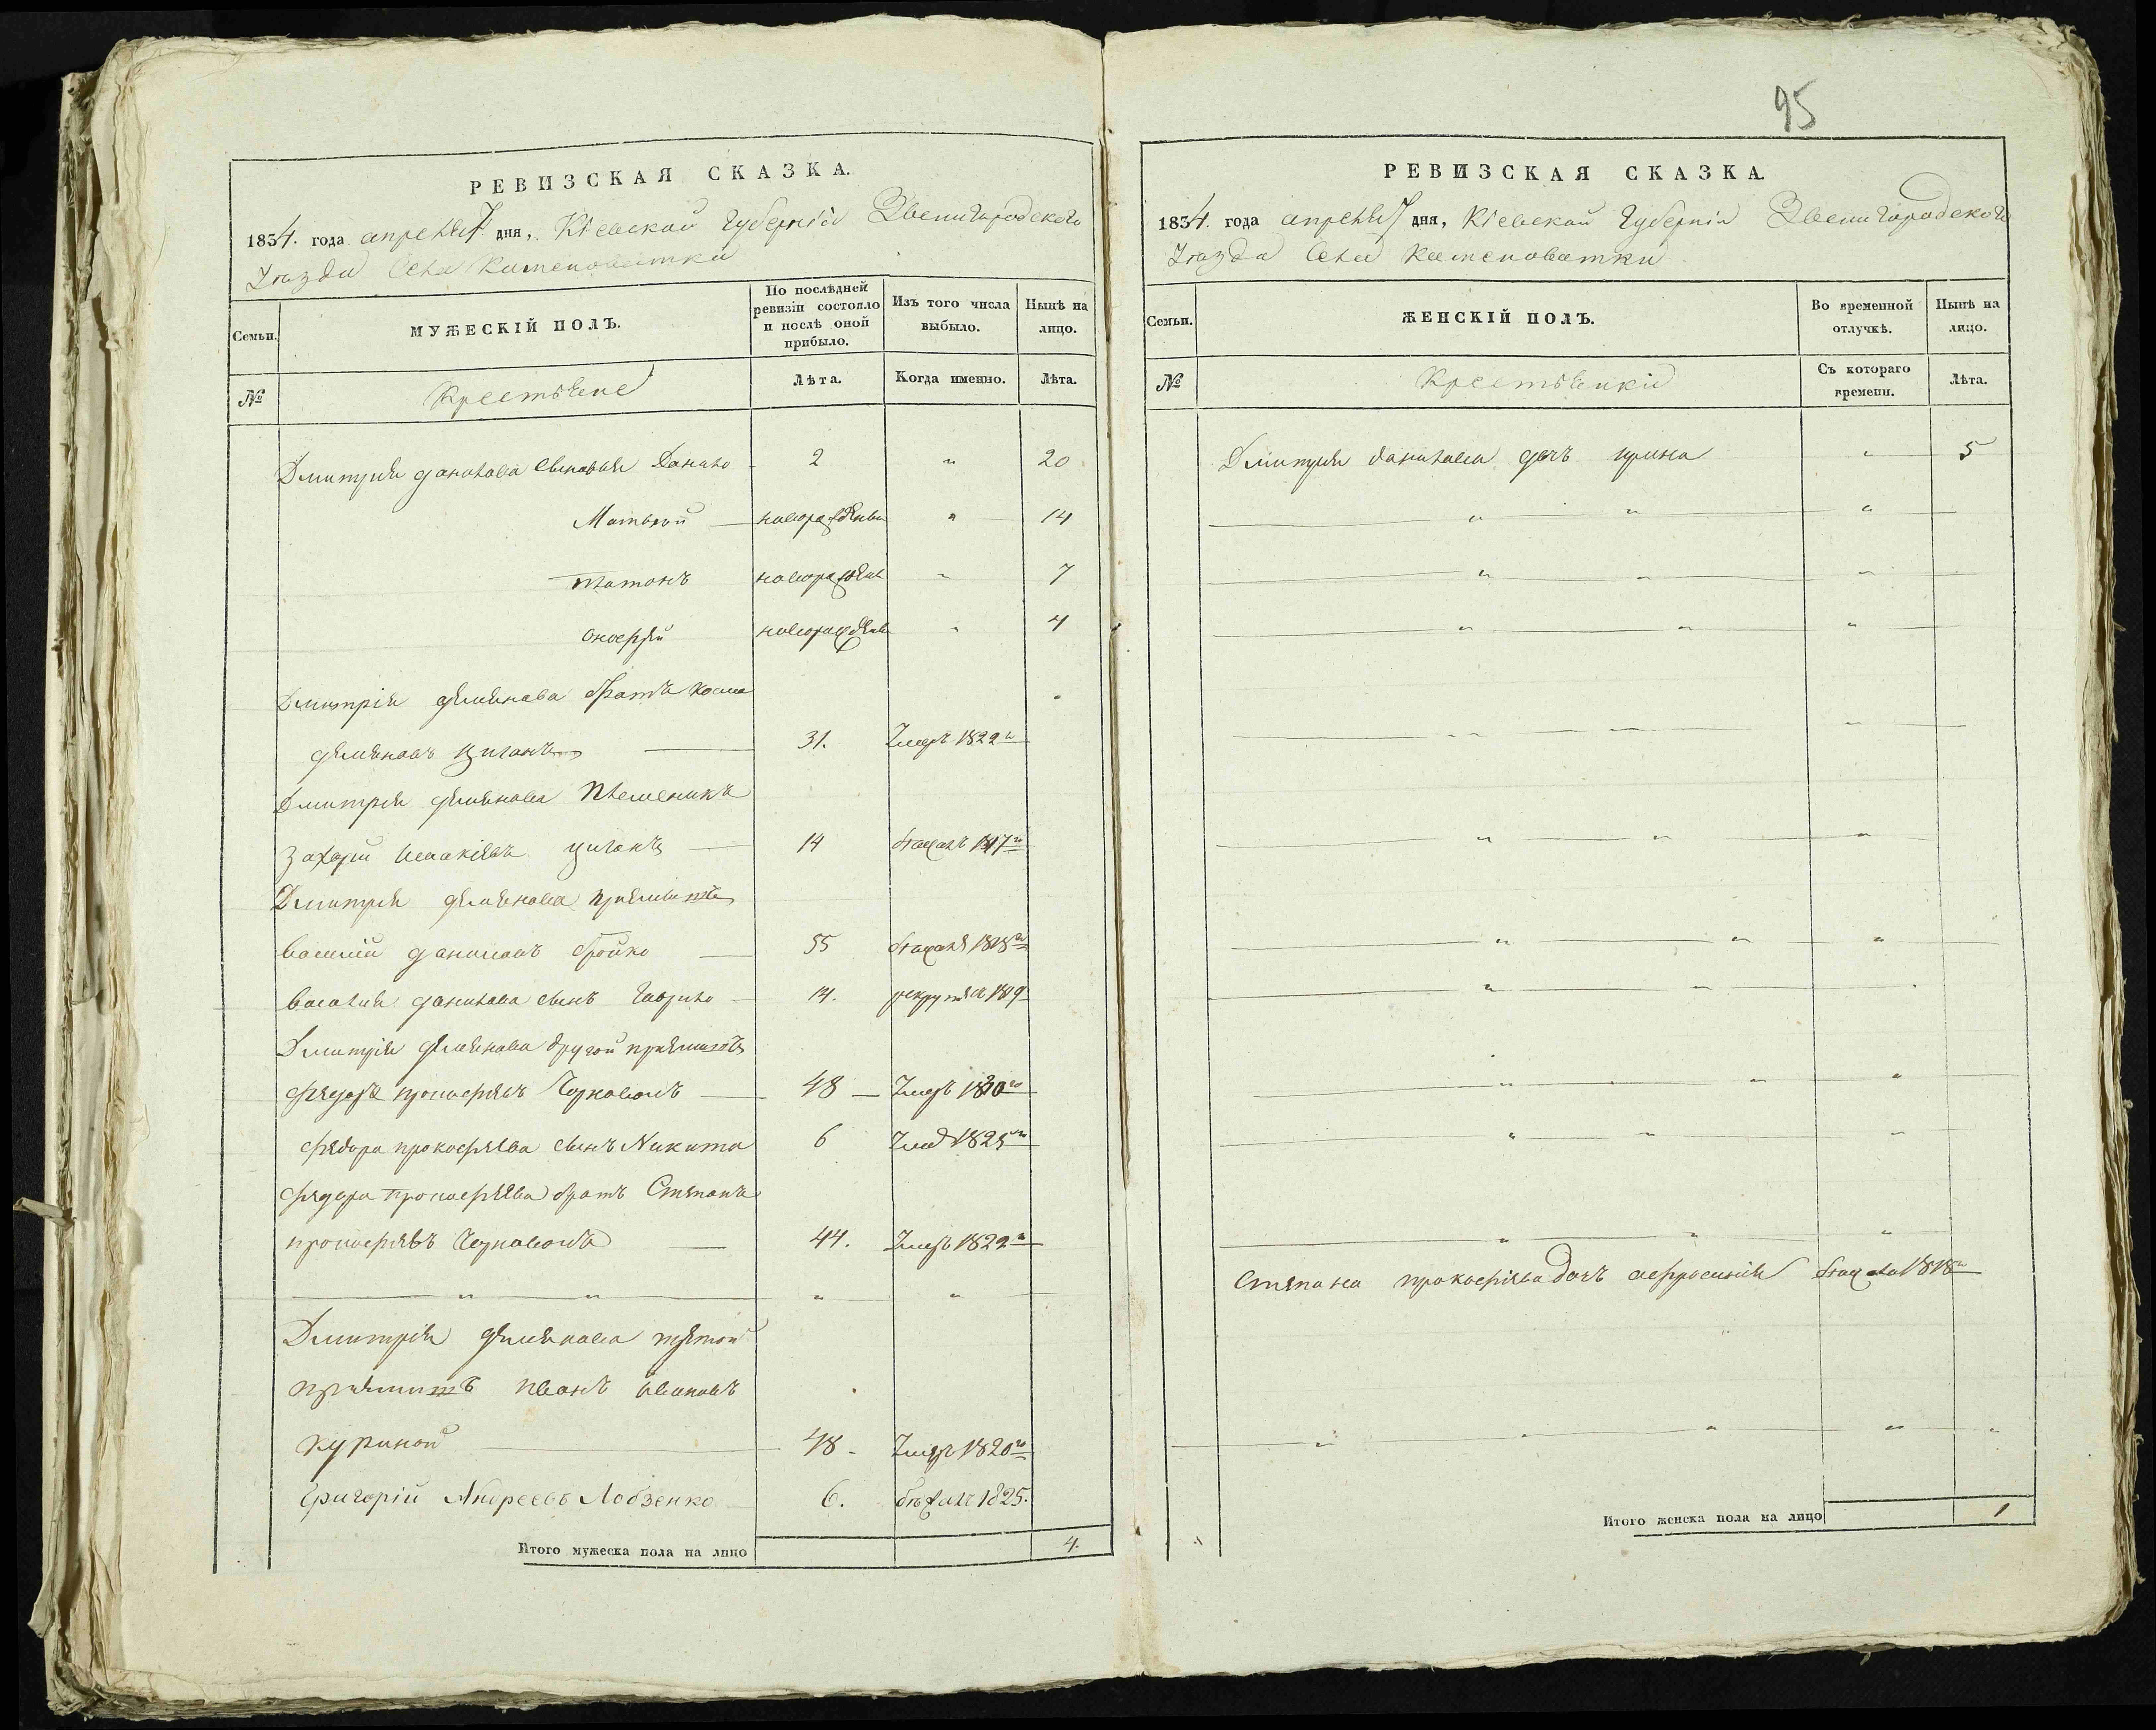 РЕВИЗСКАЯ СКАЗКА.
1834. года апреля 7 дня, Кіевской Губерніи Звенигородского
Уѣзда Села Каменоватки
Семьи.
МУЖЕСКІЙ ПОЛЪ.
По послѣдней ревизіи состояло и послѣ оной прибыло.
Изъ того числа выбыло.
Нынѣ на лицо.
№
Крестьяне
Лѣта.
Когда именно.
Лѣта.
Дмитрия данилова сыновья Данило 2 „ 20
Матвѣй новорожденъ „ 14
Платонъ новорожден „ 7
Онофрій новорожден „ 4
Дмитрія демянова братъ Косма
демяновъ Циганъ 31. Умеръ 1822
Дмитрия демянова племеникъ
Захарій Исакіевъ циганъ 14 бѣжалъ 1817
Дмитрия демянова приемишъ
василій даниловъ бойко 55 бѣжалъ 1818
василия данилова сынъ Гаврило 14. рекрутъ 1819
Дмитрія демянова другой приемишъ
федоръ прокофіевъ 48 — Умеръ 1830
федора прокофіева сынъ Никита 6 Умер 1825
федора прокофіева братъ Степанъ
прокофіевъ 44. Умеръ 1822
„ „ „ „
Дмитрія демянова третой
приемишъ иванъ ивановъ
Куриной 48 - Умеръ 1820
Григорій Андреевъ Лобзенко 6. бѣжалъ 1825.
Итого мужеска пола на лицо 4.
95
РЕВИЗСКАЯ СКАЗКА.
1834. года апреля 7 дня, Кіевской Губерніи Звенигородского
Уѣзда Села Каменоватки
Семьи.
ЖЕНСКІЙ ПОЛЪ.
Во временной отлучкѣ.
Нынѣ на лицо.
№
Крестьянки
Съ котораго времени.
Лѣта.
Дмитрия данилова дочь ирина „ 5
Степана прокофіева дочь афросиния бѣжала 1818
Итого женска пола на лицо 1